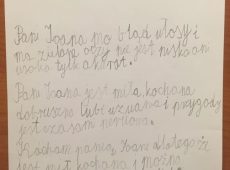 Pani Joana ma błąd włosy i
ma zielone oczy nie jest niska ani
wsoka tylko akurat.
Pani Joana jest miła, kochana
dobruszna lubi uzwania i przygody
jest czasam nerwowa.
Kocham panią Joane dlatego że
jest miła kochana i można